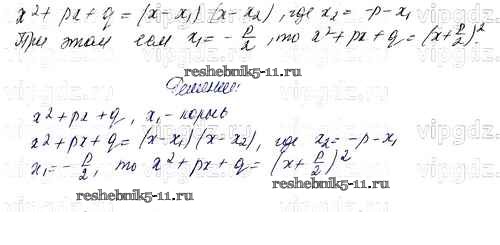 x² + px + q = (x - x₁)(x - x₂), где x₂ = -p - x₁
При этом если x₁ = - p/2, то x² + px + q = (x + p/2)²
reshebnik5-11.ru
Решение:
x² + px + q, x₁ - корень
x² + px + q = (x - x₁)(x - x₂), где x₂ = -p - x₁
x₁ = - p/2, то x² + px + q = (x + p/2)²
reshebnik5-11.ru
vipgdz.com